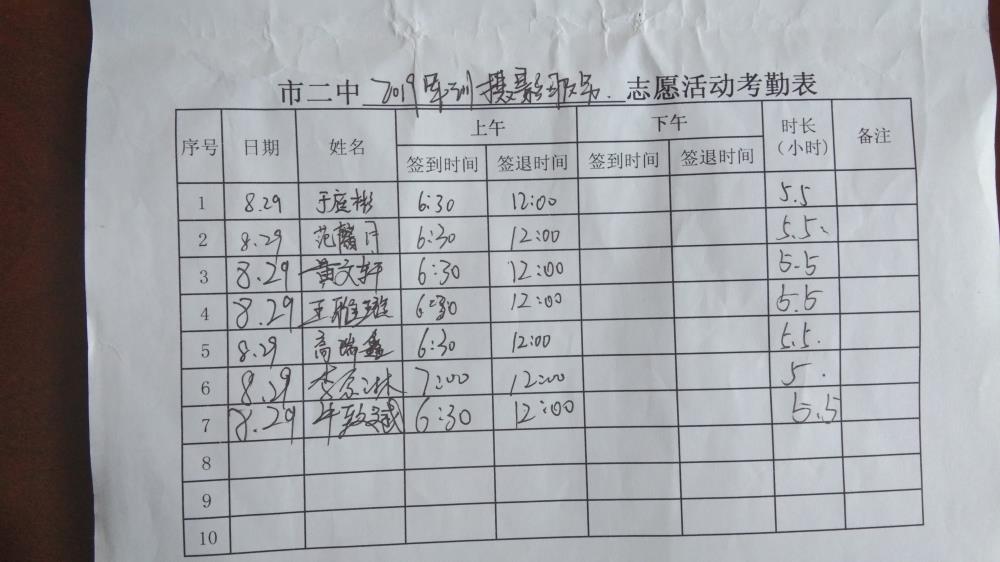 市二中 2019军训摄影班务. 志愿活动考勤表
序号 日期 姓名 上午 下午 时长（小时） 备注
签到时间 签退时间 签到时间 签退时间
1 8.29 于庭彬 6:30 12:00 5.5
2 8.29 范馨月 6:30 12:00 5.5.
3 8.29 黄文轩 6:30 12:00 5.5
4 8.29 王雅璇 6:30 12:00 5.5
5 8.29 高瑞鑫 6:30 12:00 5.5.
6 8.29 李 林 7:00 12:00 5.
7 8.29 牛 斌 6:30 12:00 5.5
8
9
10